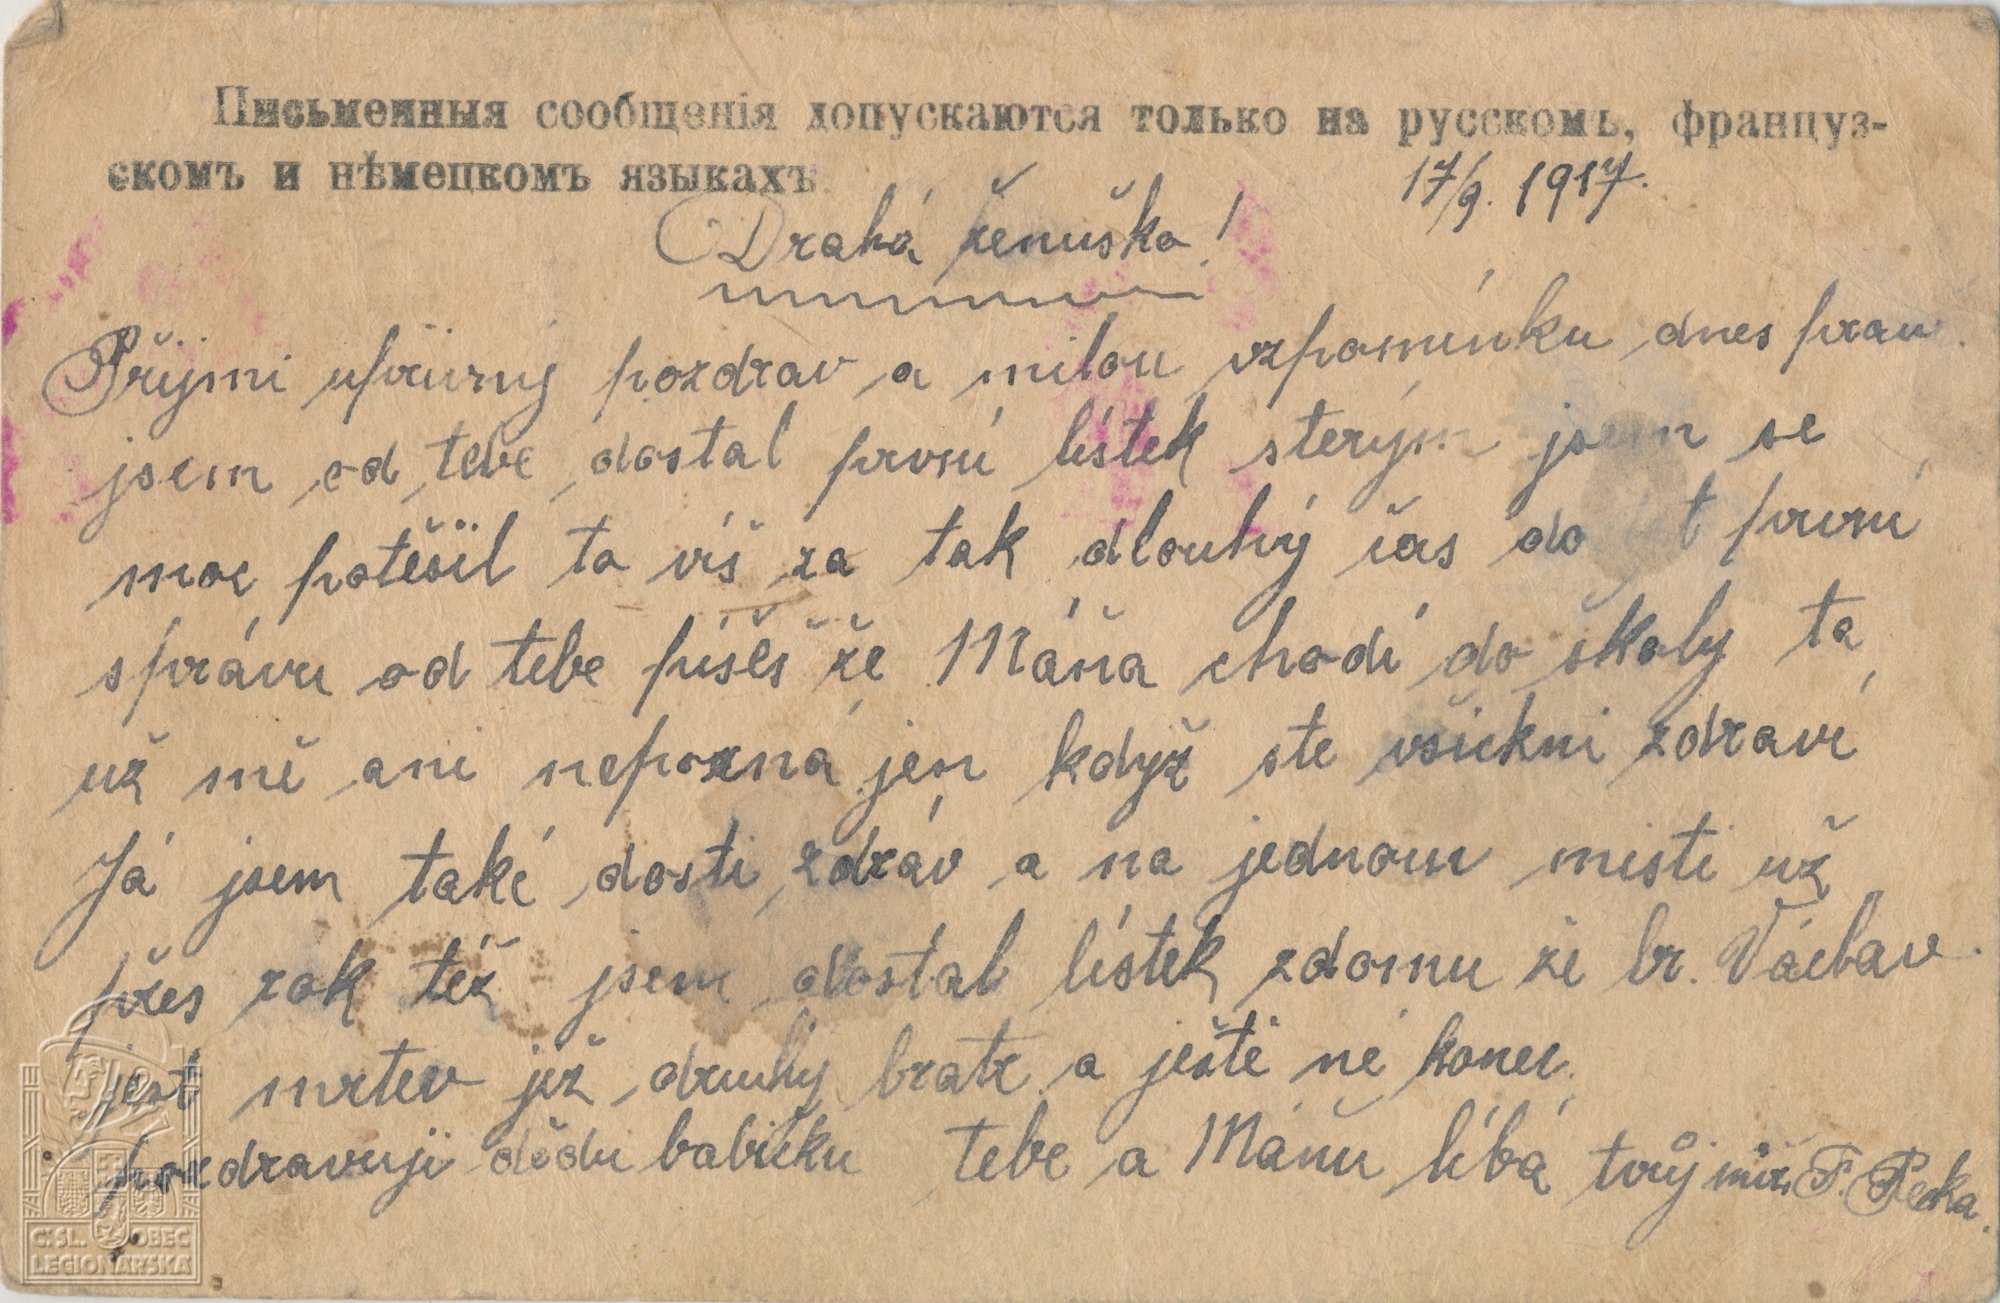 Письменныя сообщенія допускаются только на русскомъ, француз-
скомъ и нѣмецкомъ языкахъ.
17/9. 1917.
Drahá ženuško!
Přijmi upřímný pozdrav a milou vzpomínku dnes prav
jsem od tebe dostal první lístek sterým jsem se
moc potěšil to víš za tak dlouhý čas první
správu od tebe píšeš že Máňa chodí do školy ta
už mě ani nepozná jen když ste všickni zdraví
Já jsem také dosti zdráv a na jednom misti už
přes rok též jsem dostal lístek zdomu že br. Václav
jest mrtev již druhý bratr a ještě né konec.
pozdravuji dědu babičku tebe a Máňu líbá tvůj muž F.
Č.SL. OBEC
LEGIONÁŘSKÁ